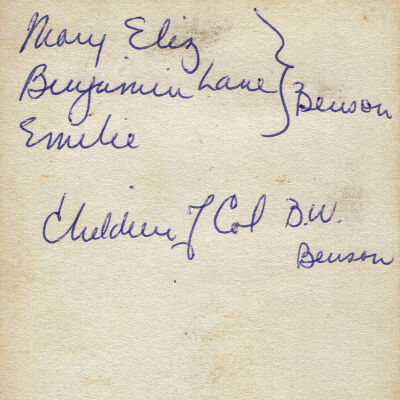 Mary Eliz
Benjamin Lane } Benson
Emilie
Children of Col B.W.
Benson